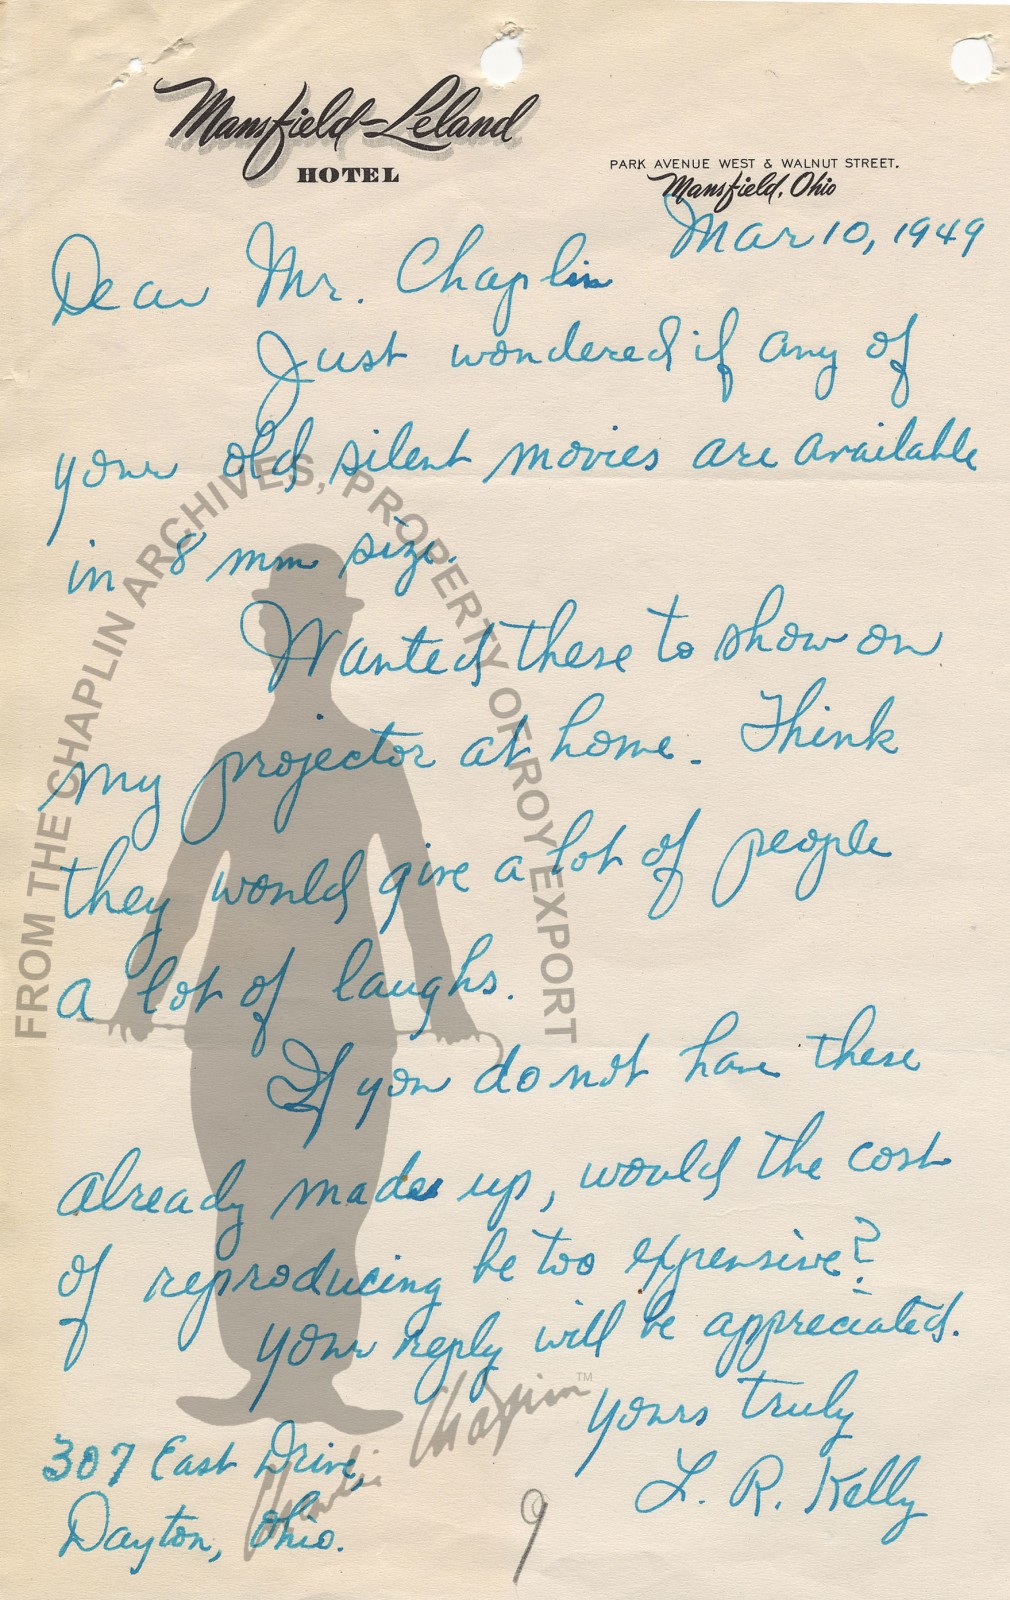 Mansfield-Leland
HOTEL
PARK AVENUE WEST & WALNUT STREET.
Mansfield, Ohio
Mar 10, 1949
Dear Mr. Chaplin
Just wondered if any of
your old silent movies are available
in 8 mm size.
Wanted these to show on
my projector at home. Think
they would give a lot of people
a lot of laughs.
If you do not have these
already made up, would the cost
of reproducing be too expensive?
Your reply will be appreciated.
Yours truly
L. R. Kelly
307 East Drive,
Dayton, Ohio.
9
FROM THE CHAPLIN ARCHIVES, PROPERTY OF ROY EXPORT
Charlie Chaplin TM